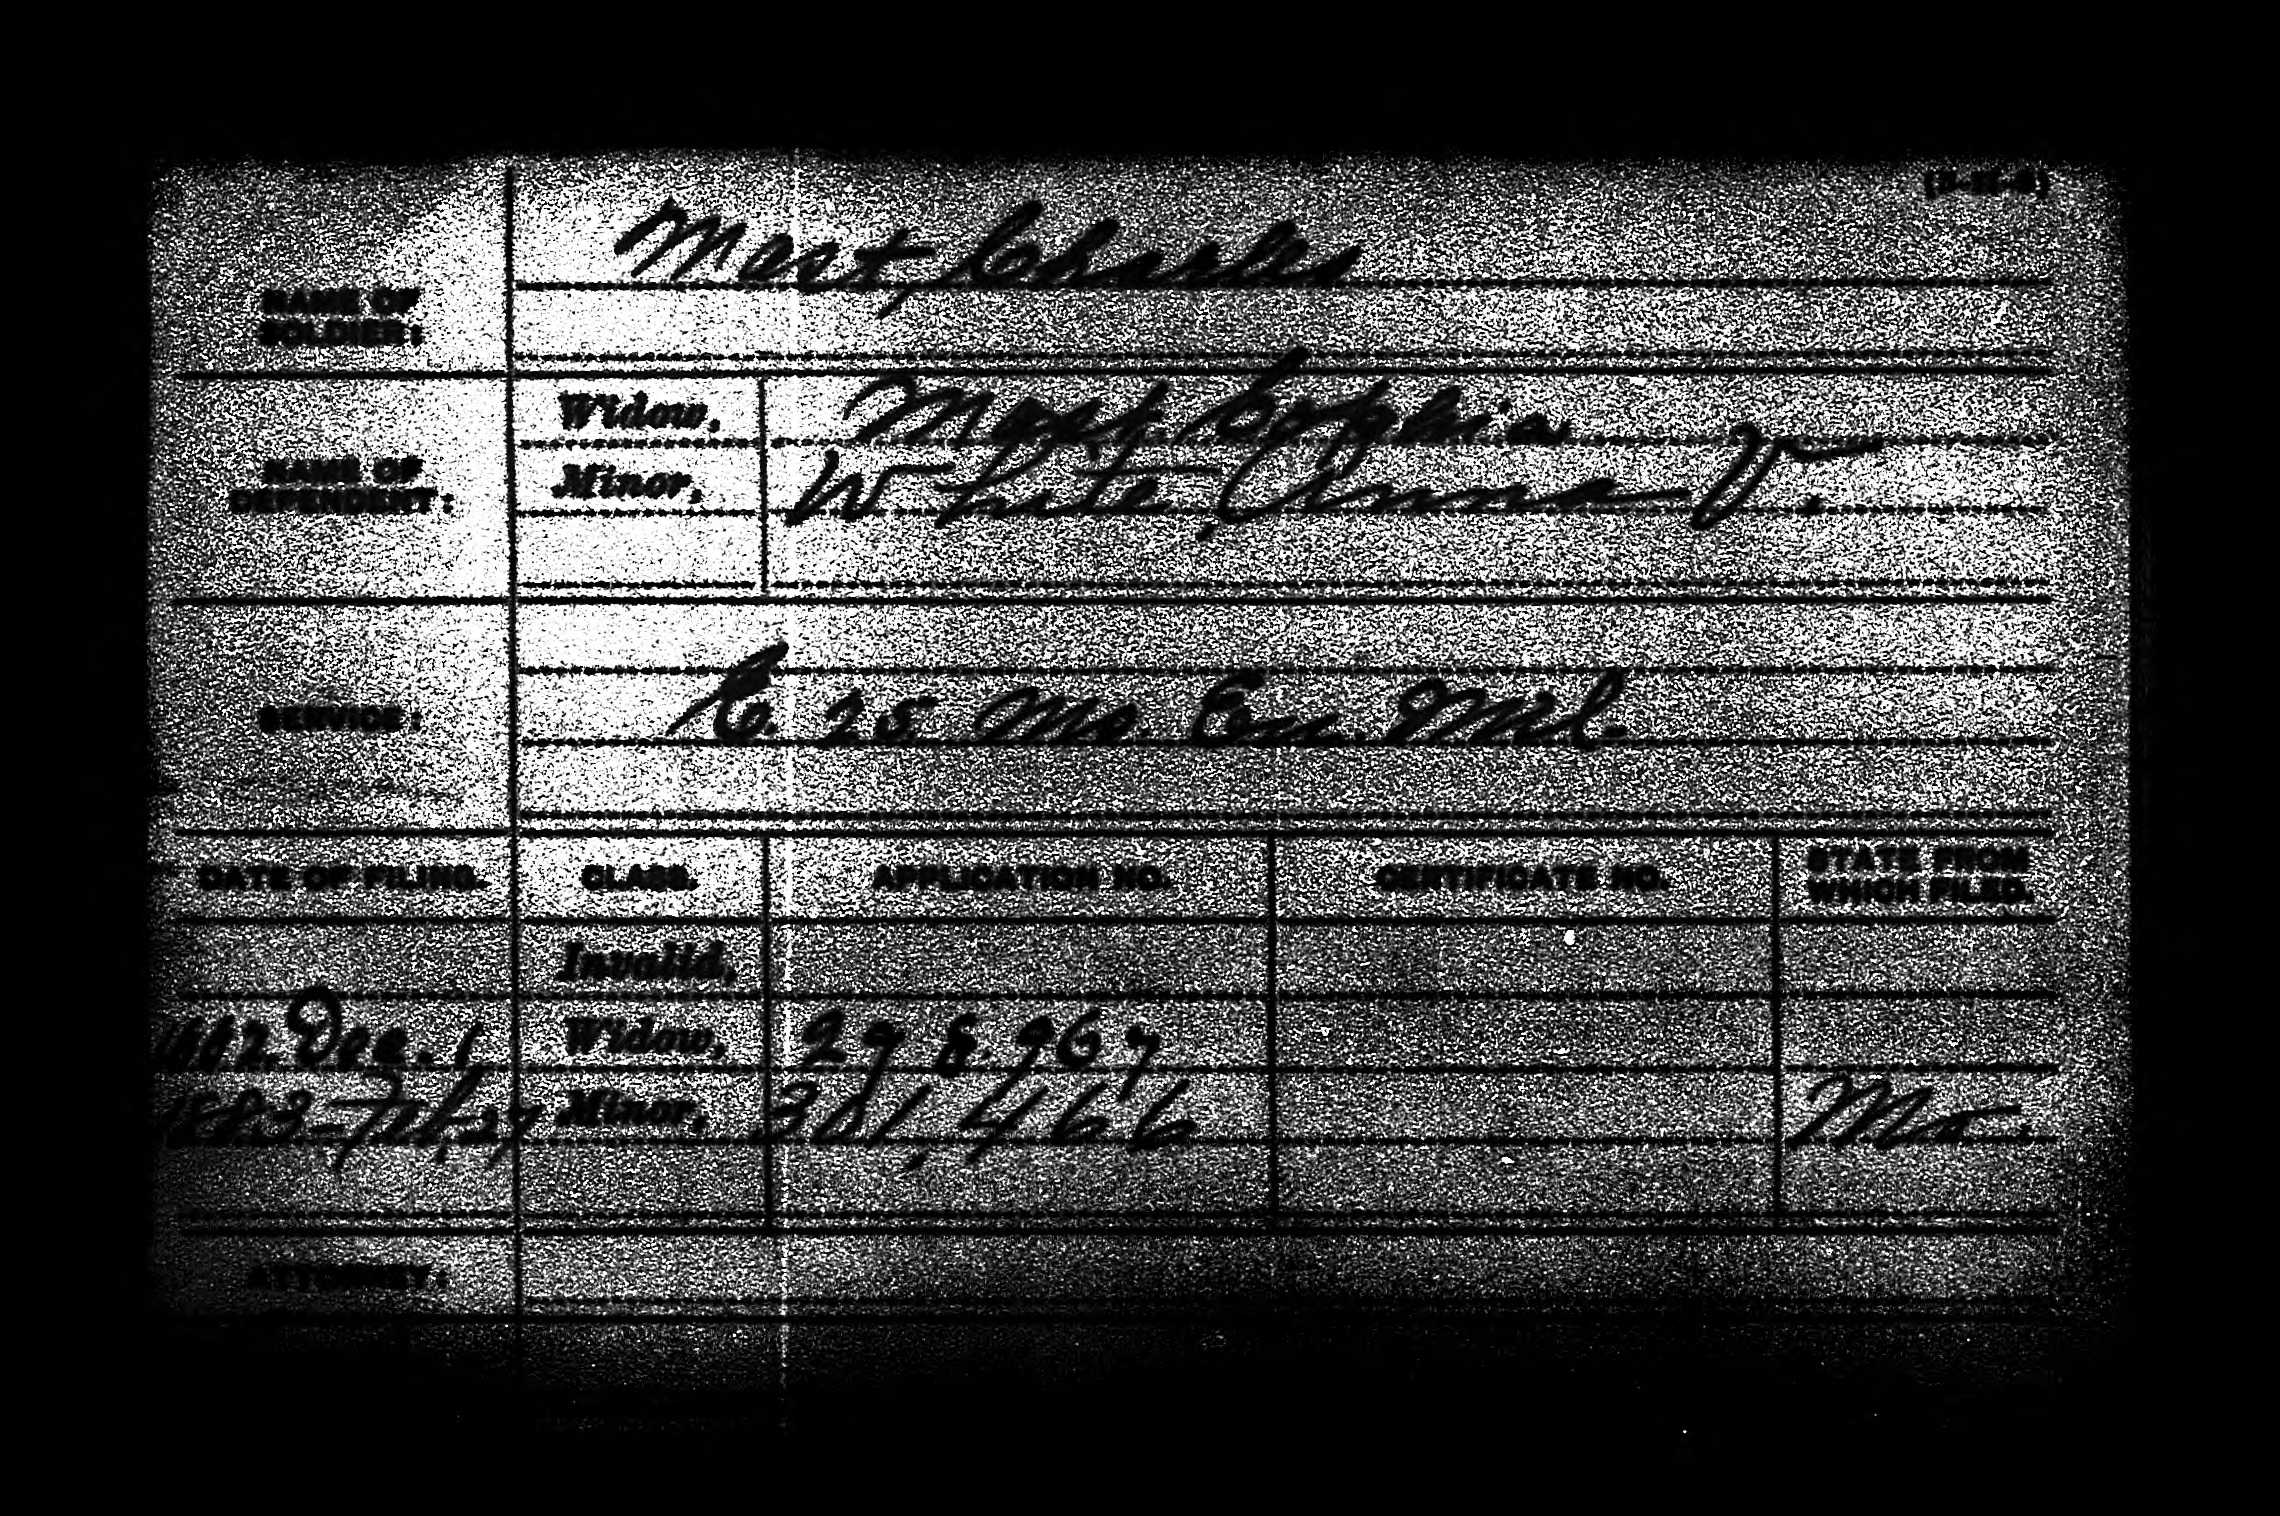 Mert, Charles
NAME OF
SOLDIER:
Widow, Sophia
Minor, White, Anna V.
NAME OF
DEPENDENT:
SERVICE: C. 25 Mo. En. Mil.
DATE OF FILING. CLASS. APPLICATION NO. CERTIFICATE NO. STATE FROM
WHICH FILED.
Invalid,
1882 Dec. 1 Widow, 298.967
1883 Feb. 27 Minor, 301,466 Mo.
ATTORNEY: